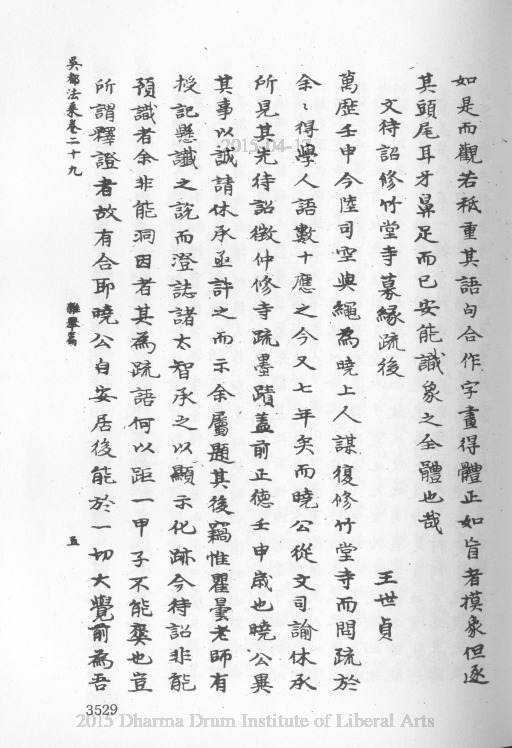 如是而觀若秪重其語句合作字畫得體正如盲者摸象但逐
其頭尾耳牙鼻足而已安能識象之全體也哉
文待詔修竹堂寺募緣疏後
王世貞
萬歷壬申今陸司空與繩為曉上人謀復修竹堂寺而問疏於
余余得學人語數十應之今又七年矣而曉公從文司諭休承
所見其先待詔徵仲修寺疏墨蹟蓋前正德壬申歲也曉公異
其事以誠請休承亟許之而示余屬題其後竊惟瞿曇老師有
授記懸讖之說而澄誌諸太智承之以顯示化跡今待詔非能
預識者余非能洞因者其為疏語何以距一甲子不能爽也豈
所謂釋證者故有合耶曉公自安居後能於一切大覺前為吾
吳都法乘卷二十九
雜舉篇
五
3529
2015-04-17
2015 Dharma Drum Institute of Liberal Arts